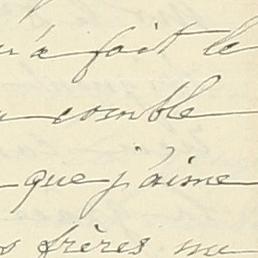 a fait le
comble
que j'aime
frères